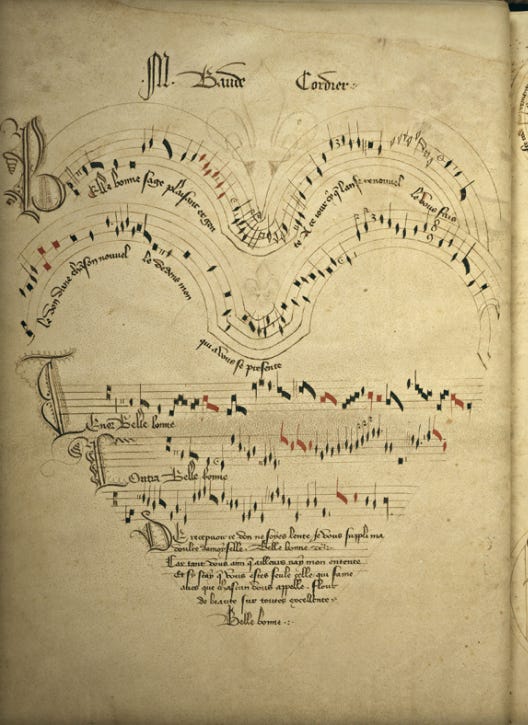 M. Baude Cordier
Belle bonne sage plaisant et gen te A ce iour cy q lan se renouvel le vous fais
le don dune chanson nouvel le dedens mon qui a vous se presente
Tenor Belle bonne
Contra Belle bonne
De recepvoir ce don ne soyes lente Je vous suppli ma
doulce damoyselle . Belle bonne etc.
Car tant vous aim q aillours nay mon entente
Et sy scay q vous estes seule celle qui fame
aves que chascun vous appelle . Flour
de beaute sur toutes excellente .
Belle bonne .